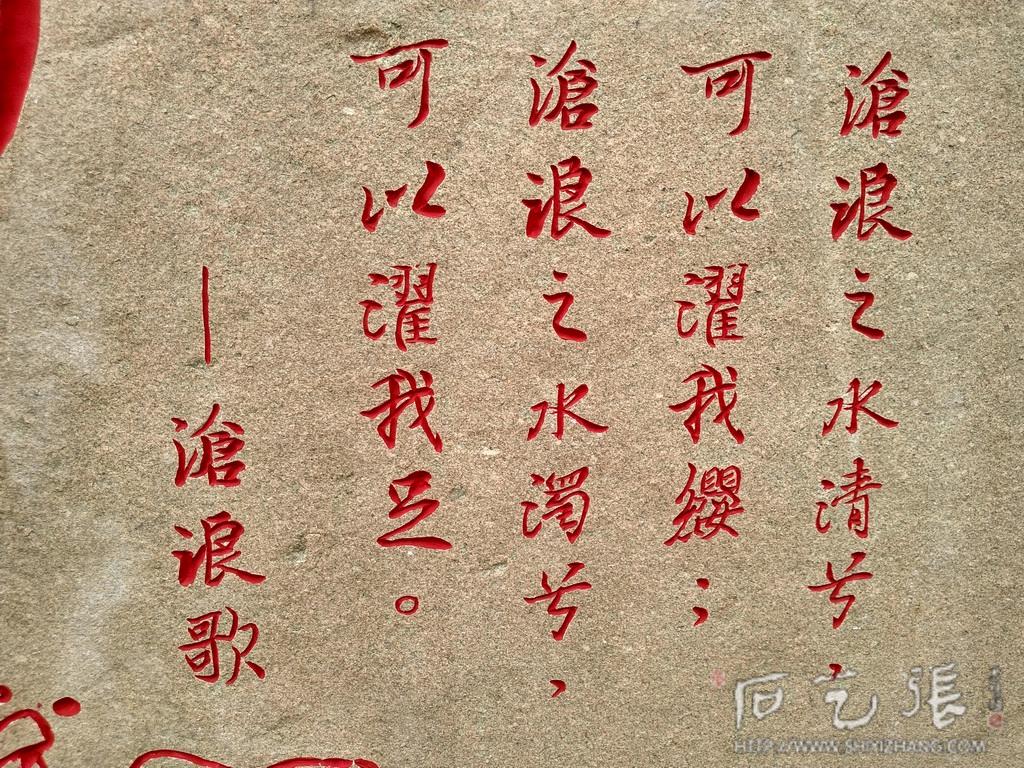 滄浪之水清兮，
可以濯我纓；
滄浪之水濁兮，
可以濯我足。
—滄浪歌
石艺張
HTTP://WWW.SHIYIZHANG.COM